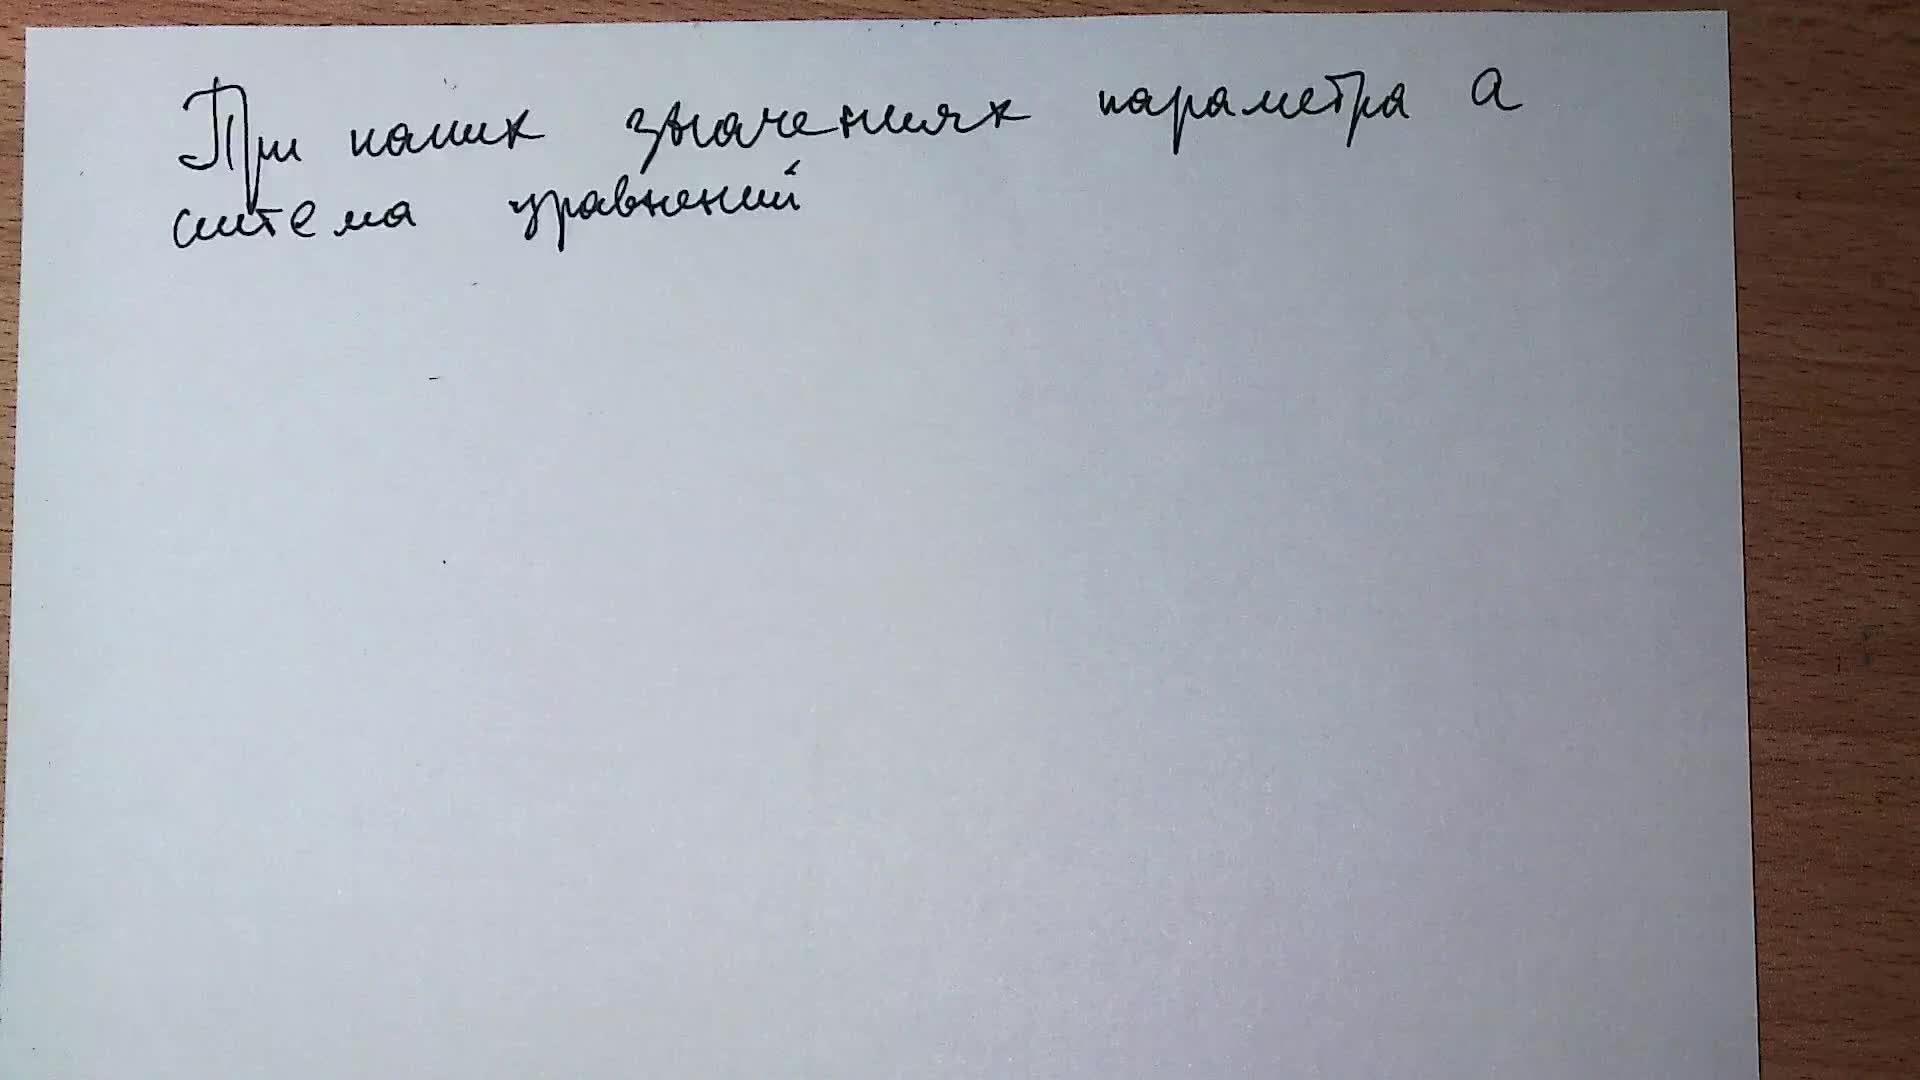 При каких значениях параметра а
система уравнений